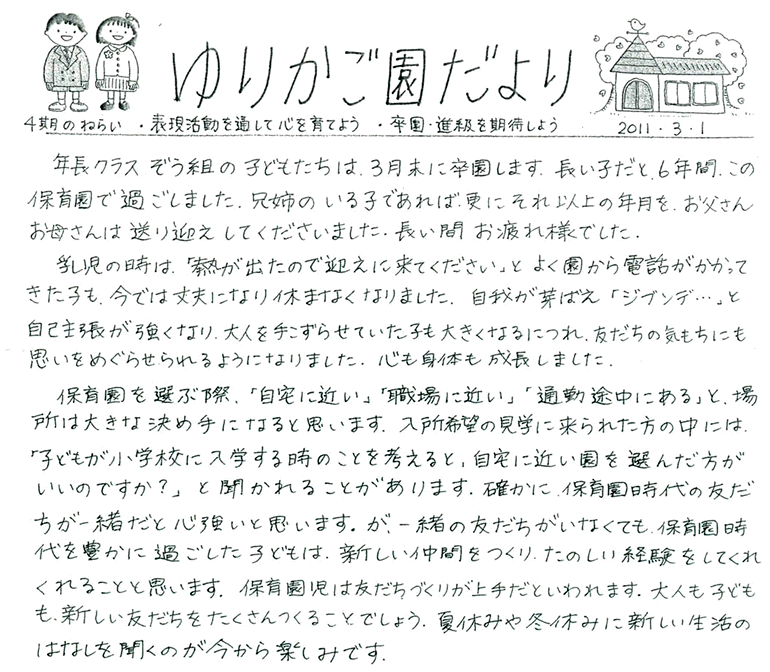 ゆりかご園だより
4期のねらい ・表現活動を通して心を育てよう ・卒園・進級を期待しよう 2011・3・1
年長クラス ぞう組の子どもたちは、3月末に卒園します。長い子だと、6年間、この
保育園で過ごしました。兄姉のいる子であれば、更にそれ以上の年月を、お父さん
お母さんは送り迎えしてくださいました。長い間お疲れ様でした。
乳児の時は、「熱が出たので迎えに来てください」とよく園から電話がかかって
きた子も、今では丈夫になり休まなくなりました。自我が芽ばえ「ジブンデ…」と
自己主張が強くなり、大人を手こずらせていた子も大きくなるにつれ、友だちの気もちにも
思いをめぐらせられるようになりました。心も身体も成長しました。
保育園を選ぶ際、「自宅に近い」「職場に近い」「通勤途中にある」と、場
所は大きな決め手になると思います。入所希望の見学に来られた方の中には、
「子どもが小学校に入学する時のことを考えると、自宅に近い園を選んだ方が
いいのですか?」と聞かれることがあります。確かに、保育園時代の友だ
ちが一緒だと心強いと思います。が、一緒の友だちがいなくても、保育園時
代を豊かに過ごした子どもは、新しい仲間をつくり、たのしい経験をしてくれ
くれることと思います。保育園児は友だちづくりが上手だといわれます。大人も子ども
も、新しい友だちをたくさんつくることでしょう。夏休みや冬休みに新しい生活の
はなしを聞くのが今から楽しみです。